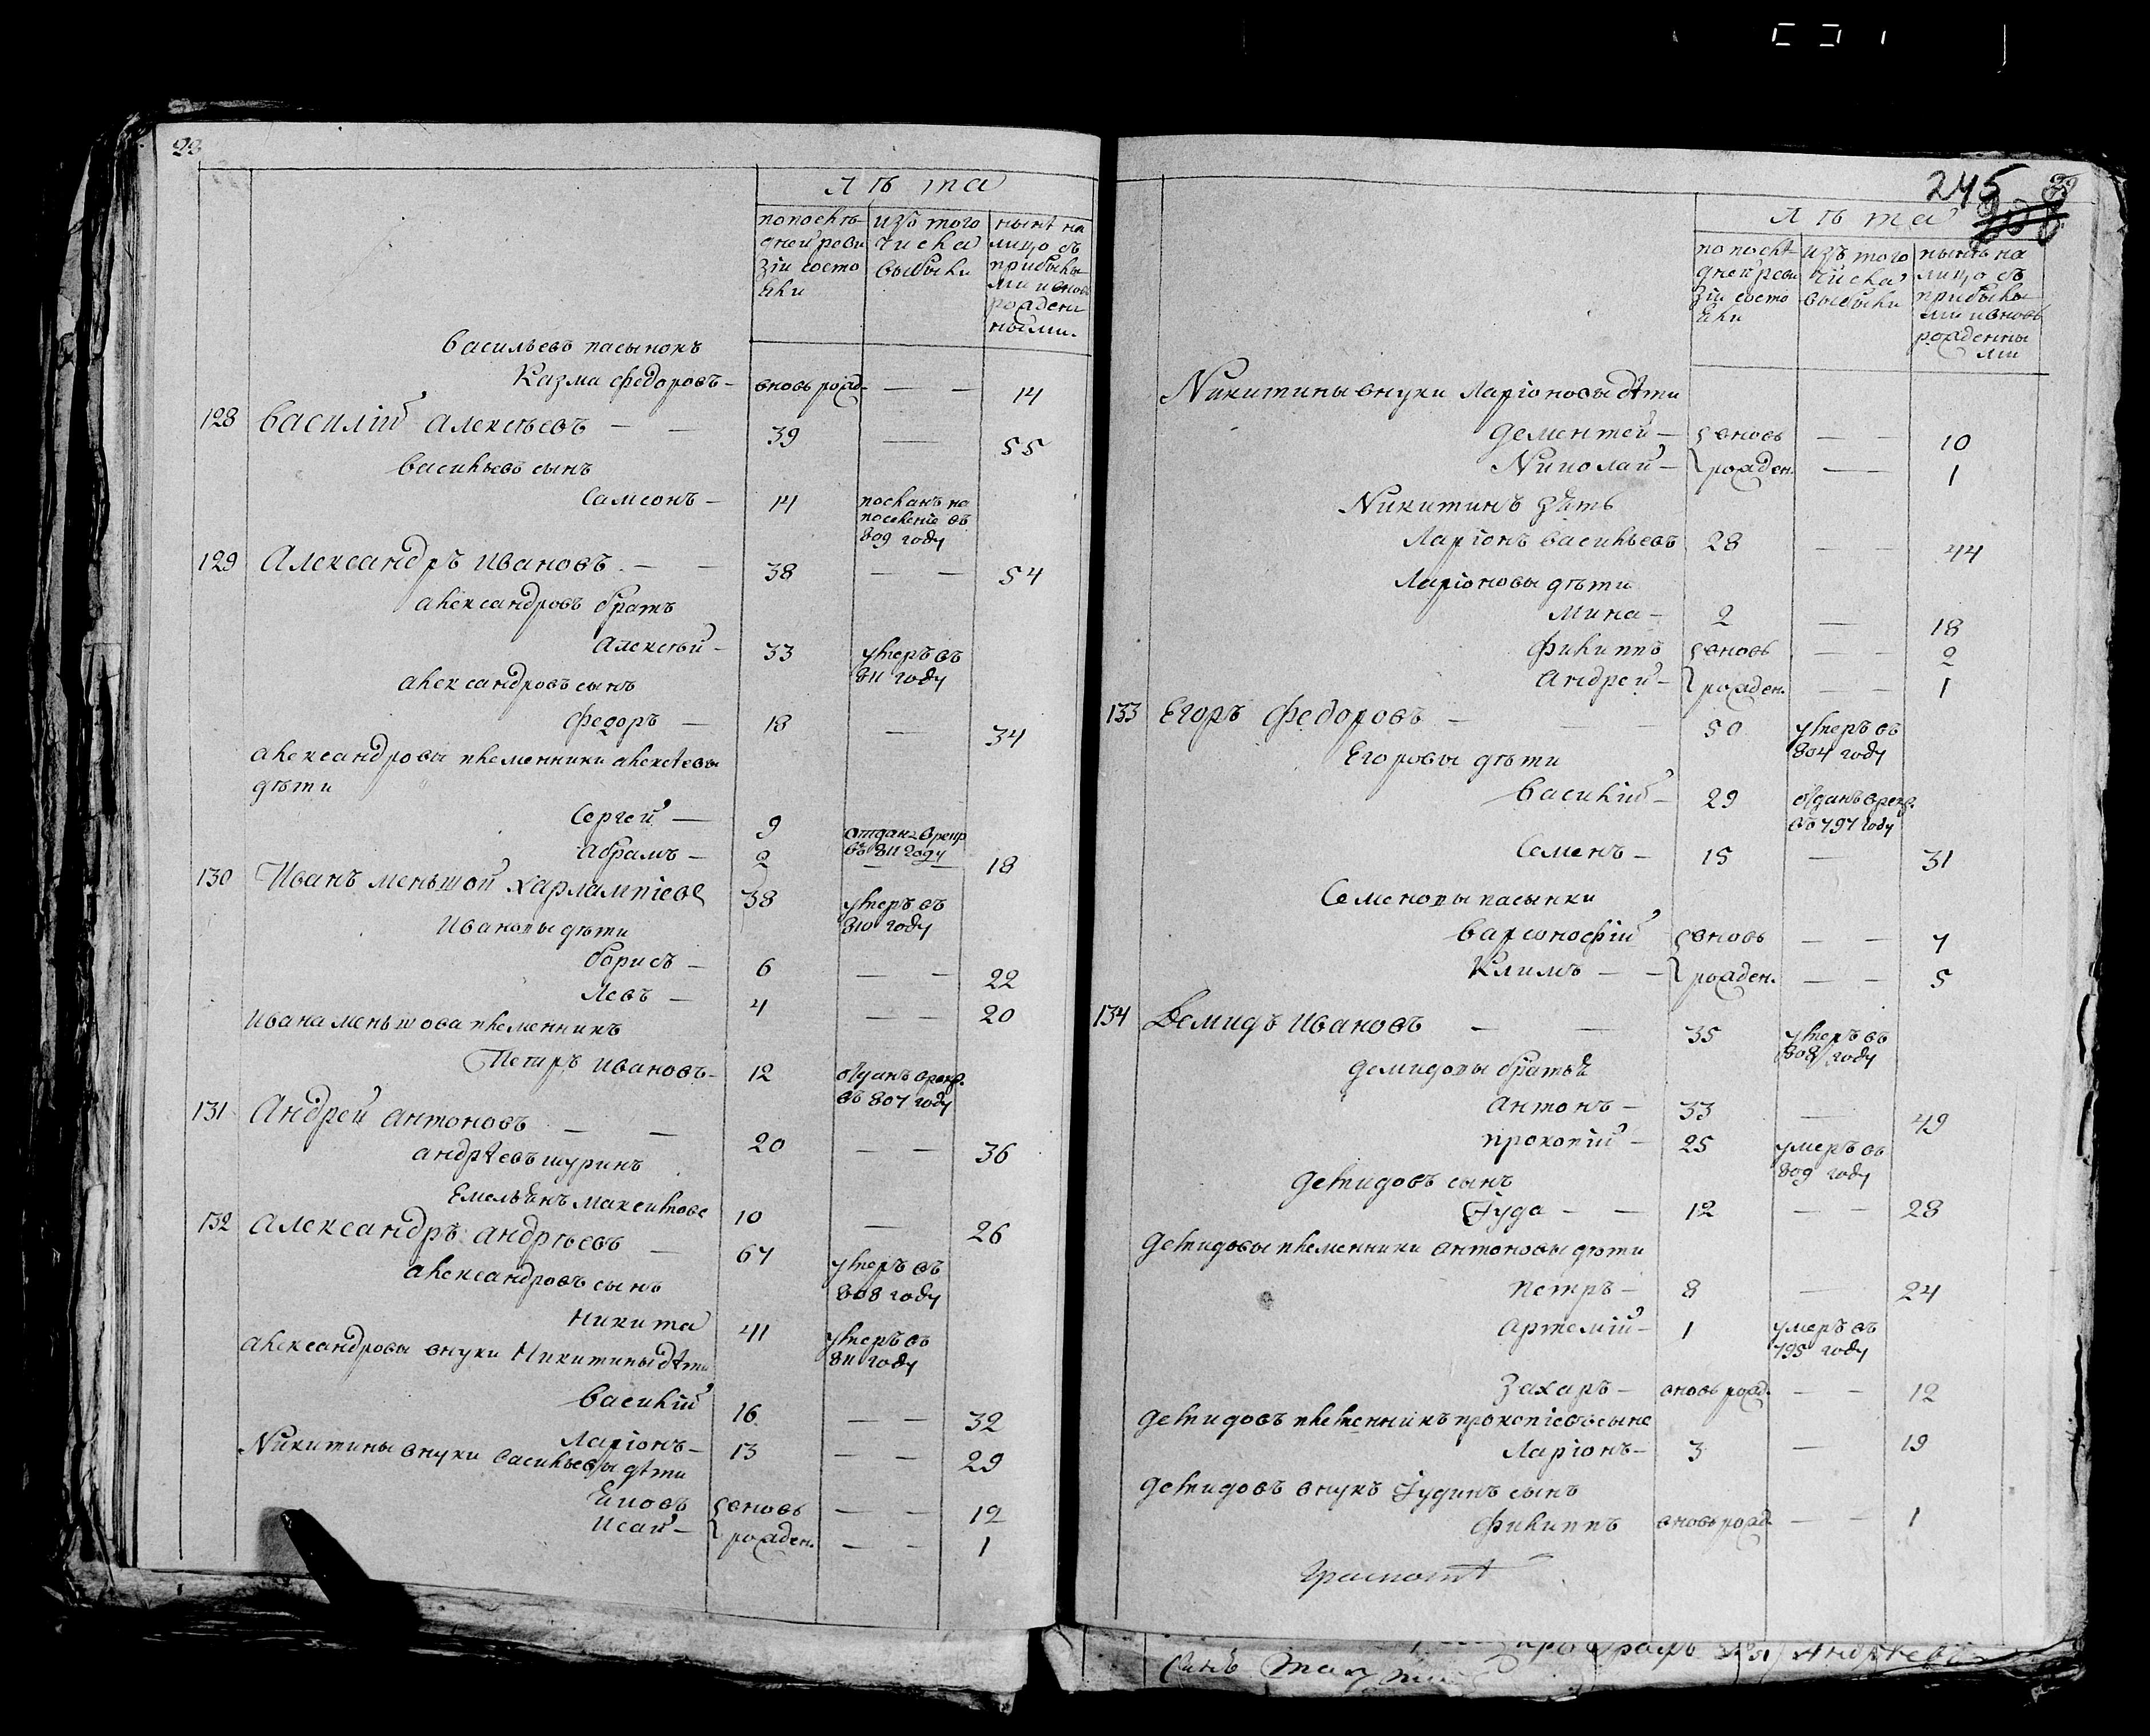 лѣта
попослѣ- изъ того нынѣ на
дней реви числа лицо съ
зіи состо выбыли прибылы
яли ми и вновь
рожден
ными.
Васильевъ пасынокъ
Казма Федоровъ – вновь рожд. — — 14
128 Василій Алексѣевъ — — 39 — 55
Васильевъ сынъ
Самсонъ – 14 посланъ на
поселеніе въ
809 году
129 Александръ Ивановъ — — 38 — — 54
Александровъ братъ
Алексѣй – 33 умеръ въ
811 году
Александровъ сынъ
Федоръ — 18 — 34
Александровы племянники Алексѣевы
дѣти
Сергей — 9 отдан в рекр
въ 811 году
Абрамъ – 2 — — 18
130 Иванъ меньшой Харлампіевъ 38 умеръ въ
810 году
Ивановы дѣти
Борисъ – 6 — — 22
Левъ – 4 — — 20
Ивана меньшова племенникъ
Петръ Ивановъ – 12 отданъ в рекр.
въ 807 году
131 Андрей Антоновъ — — 20 — — 36
Андрѣевъ шуринъ
Емельянъ Максимовъ 10 — 26
132 Александръ Андрѣевъ — 67 умеръ въ
808 году
Александровъ сынъ
Никита 41 умеръ въ
811 году
Александровы внуки Никитины дѣти
Василій 16 — — 32
Ларіонъ – 13 — — 29
Никитины внуки Васильевы дѣти
Яковъ вновь — — 12
Исай – рожден. — — 1
245
лѣта
по послѣ- изъ того нынѣ на
дней реви числа лицо съ
зіи состо выбыли прибылы
яли ми и вновь
рожденны
ми
Никитины внуки Ларіоновы дѣти
Дементей – вновь — — 10
Николай – рожден. — — 1
Никитинъ зять
Ларіонъ Васильевъ 28 — — 44
Ларіоновы дѣти
Мина – 2 — 18
Филиппъ вновь — — 2
Андрей – рожден. — — 1
133 Егоръ Федоровъ — — — 50 умеръ въ
804 году
Егоровы дѣти
Василій – 29 отданъ в рекр.
въ 797 году
Семенъ – 15 — 31
Семеновы пасынки
Варсонофій вновь — — 7
Климъ – – рожден. — — 5
134 Демидъ Ивановъ — — 35 умеръ въ
808 году
Демидовы братья
Антонъ – 33 — 49
Прокопій – 25 умеръ въ
809 году
Демидовъ сынъ
Іуда — — 12 — — 28
Демидовы племенники Антоновы дѣти
Петръ – 8 — 24
Артемій – 1 умеръ въ
795 году
Захаръ – вновь рожд. — — 12
Демидовъ племенникъ Прокопіевъ сынъ
Ларіонъ – 3 — 19
Демидовъ внукъ Іудинъ сынъ
Филиппъ вновь рожд. — — 1
Андрѣевъ